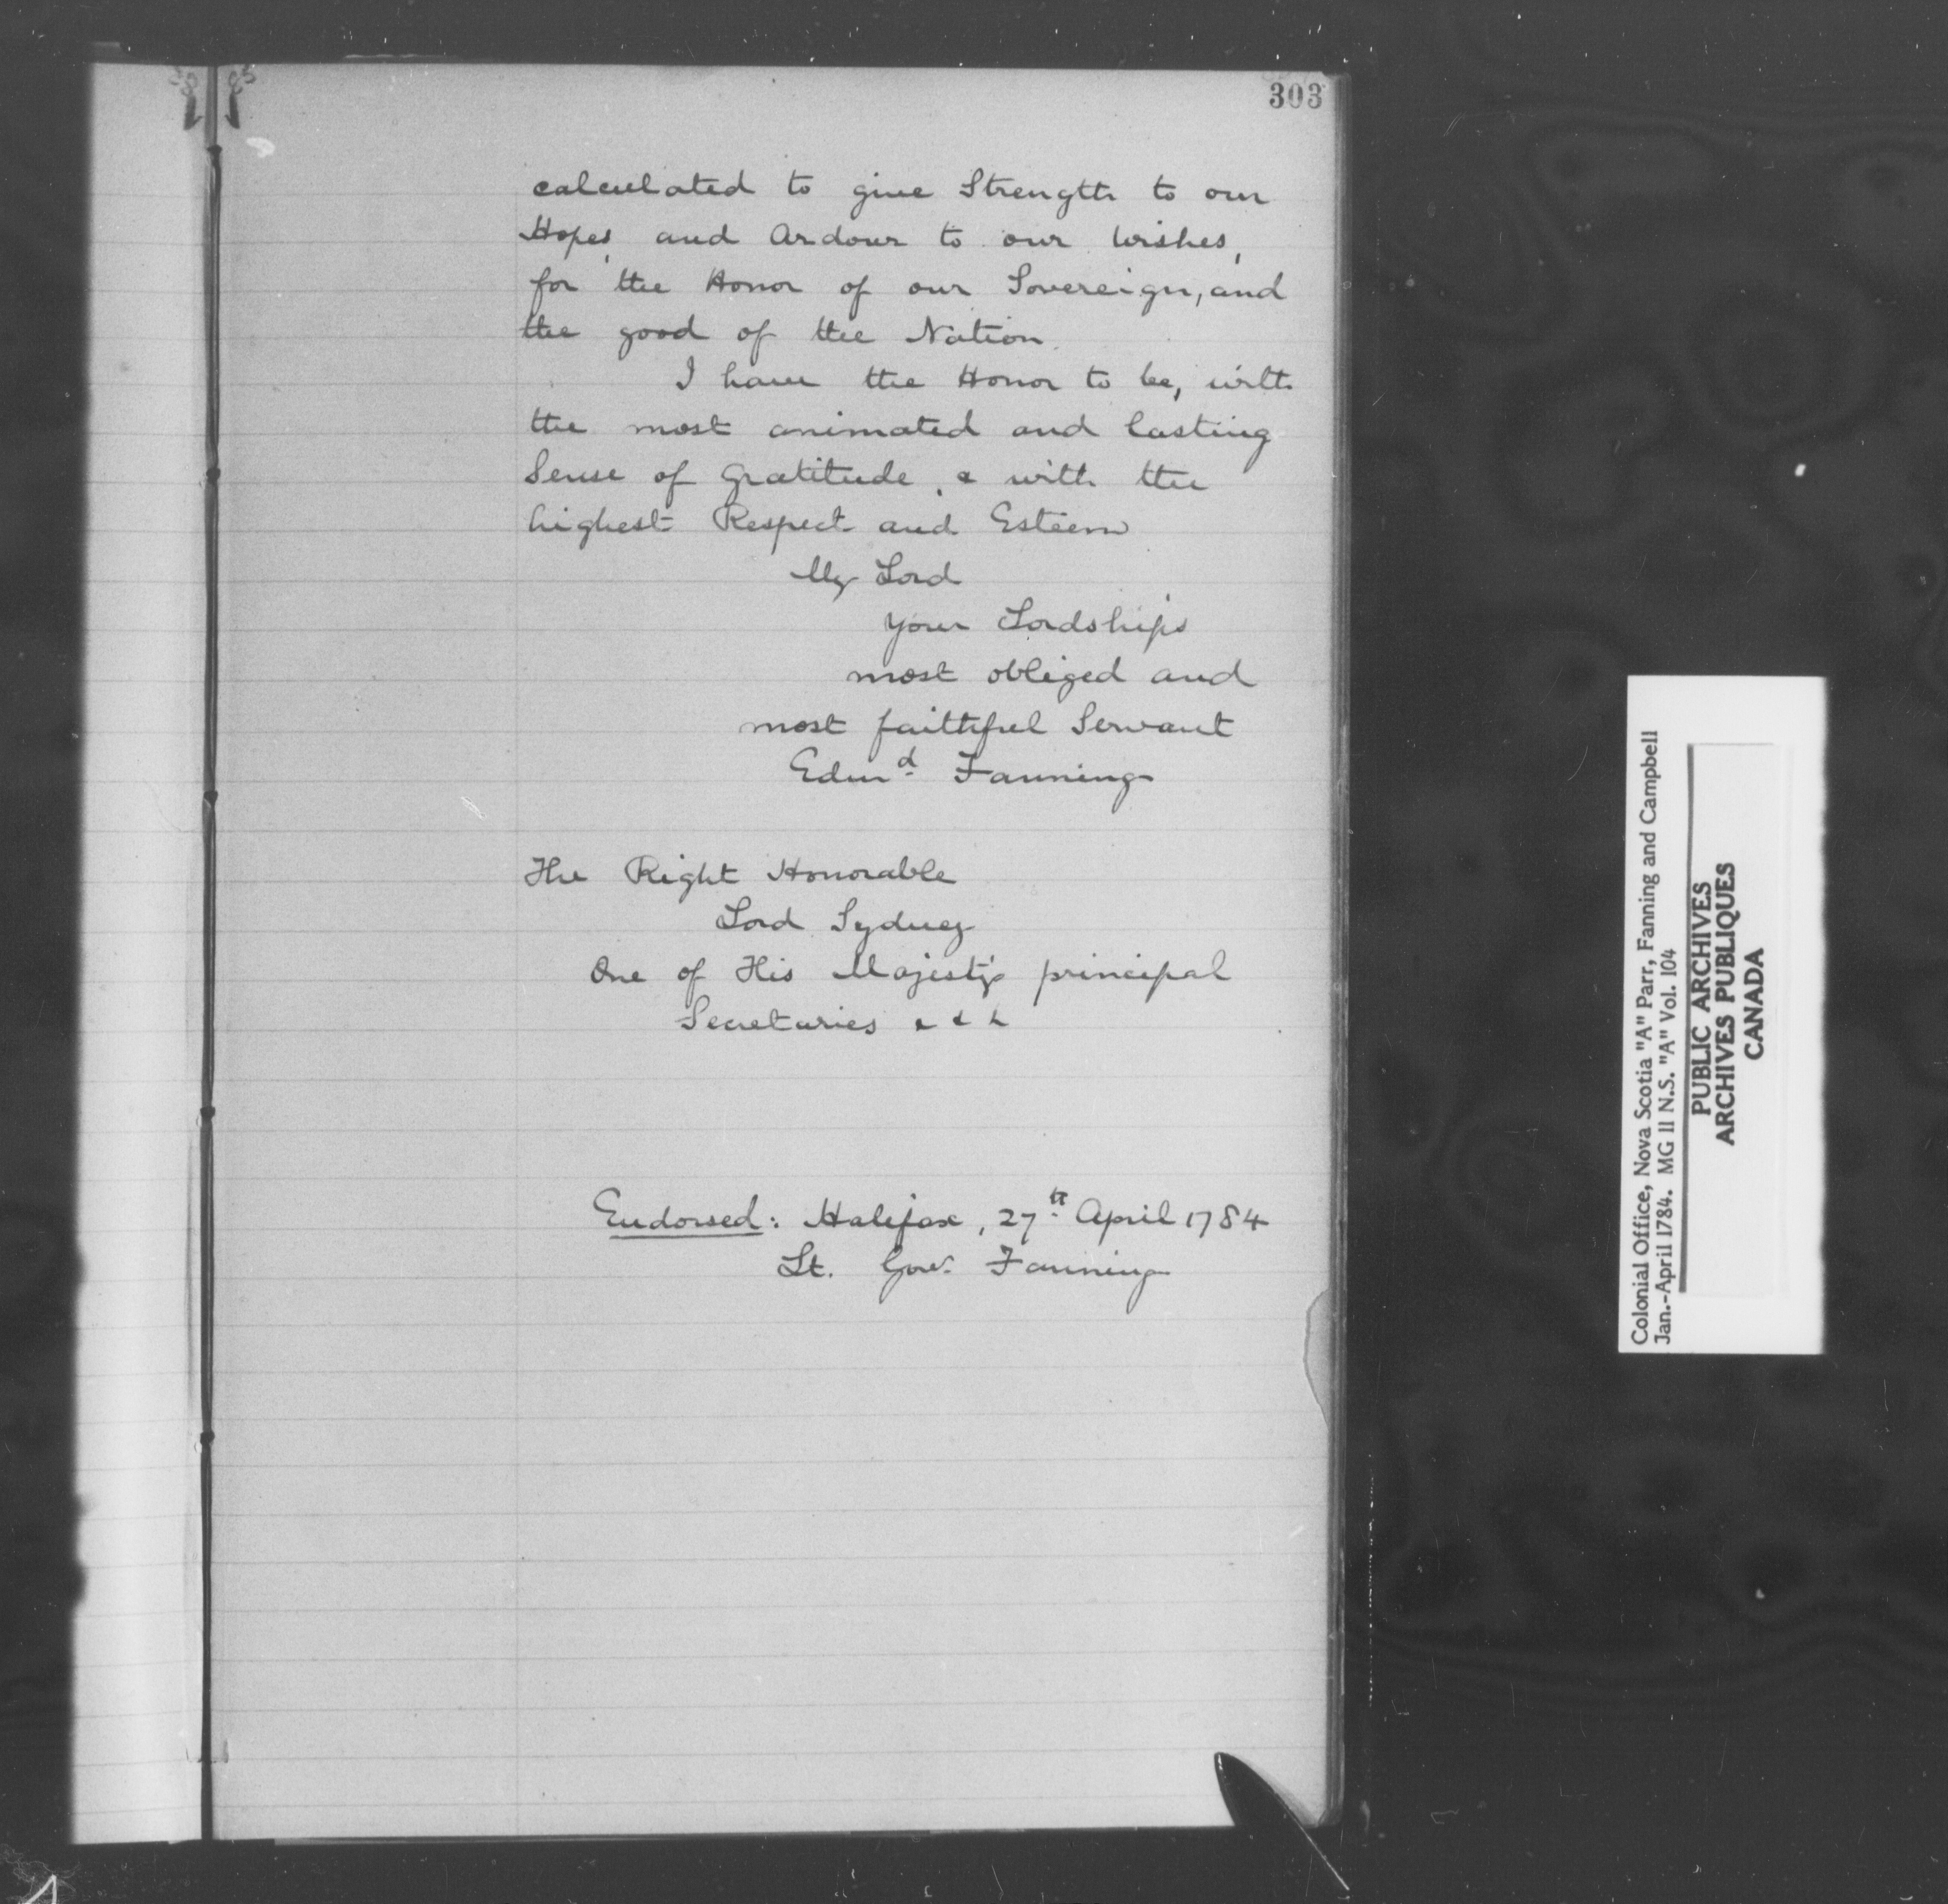 303
calculated to give Strength to our
Hopes, and Ardour to our wishes,
for the Honor of our Sovereign, and
the good of the Nation.
I have the Honor to be, with
the most animated and lasting
Sense of Gratitude, & with the
highest Respect and Esteem
My Lord
Your Lordships
most obliged and
most faithful Servant
Edmd Fanning
The Right Honorable
Lord Sydney
One of His Majesty's principal
Secretaries & & &
Endorsed: Halifax, 27th April 1784
Lt. Gov. Fanning
Colonial Office, Nova Scotia "A" Parr, Fanning and Campbell
Jan.-April 1784. MG 11 N.S. "A" Vol. 104
PUBLIC ARCHIVES
ARCHIVES PUBLIQUES
CANADA